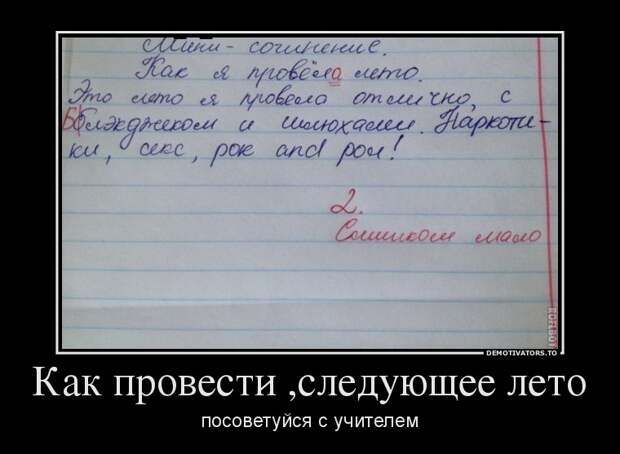 Мини - сочинение.
Как я провёла лето.
Это лето я провела отлично, с
Блэкджеком и шлюхами. Наркоти-
ки, секс, рок and рол!
2.
Слишком мало
DEMOTIVATORS.TO
Как провести ,следующее лето
посоветуйся с учителем